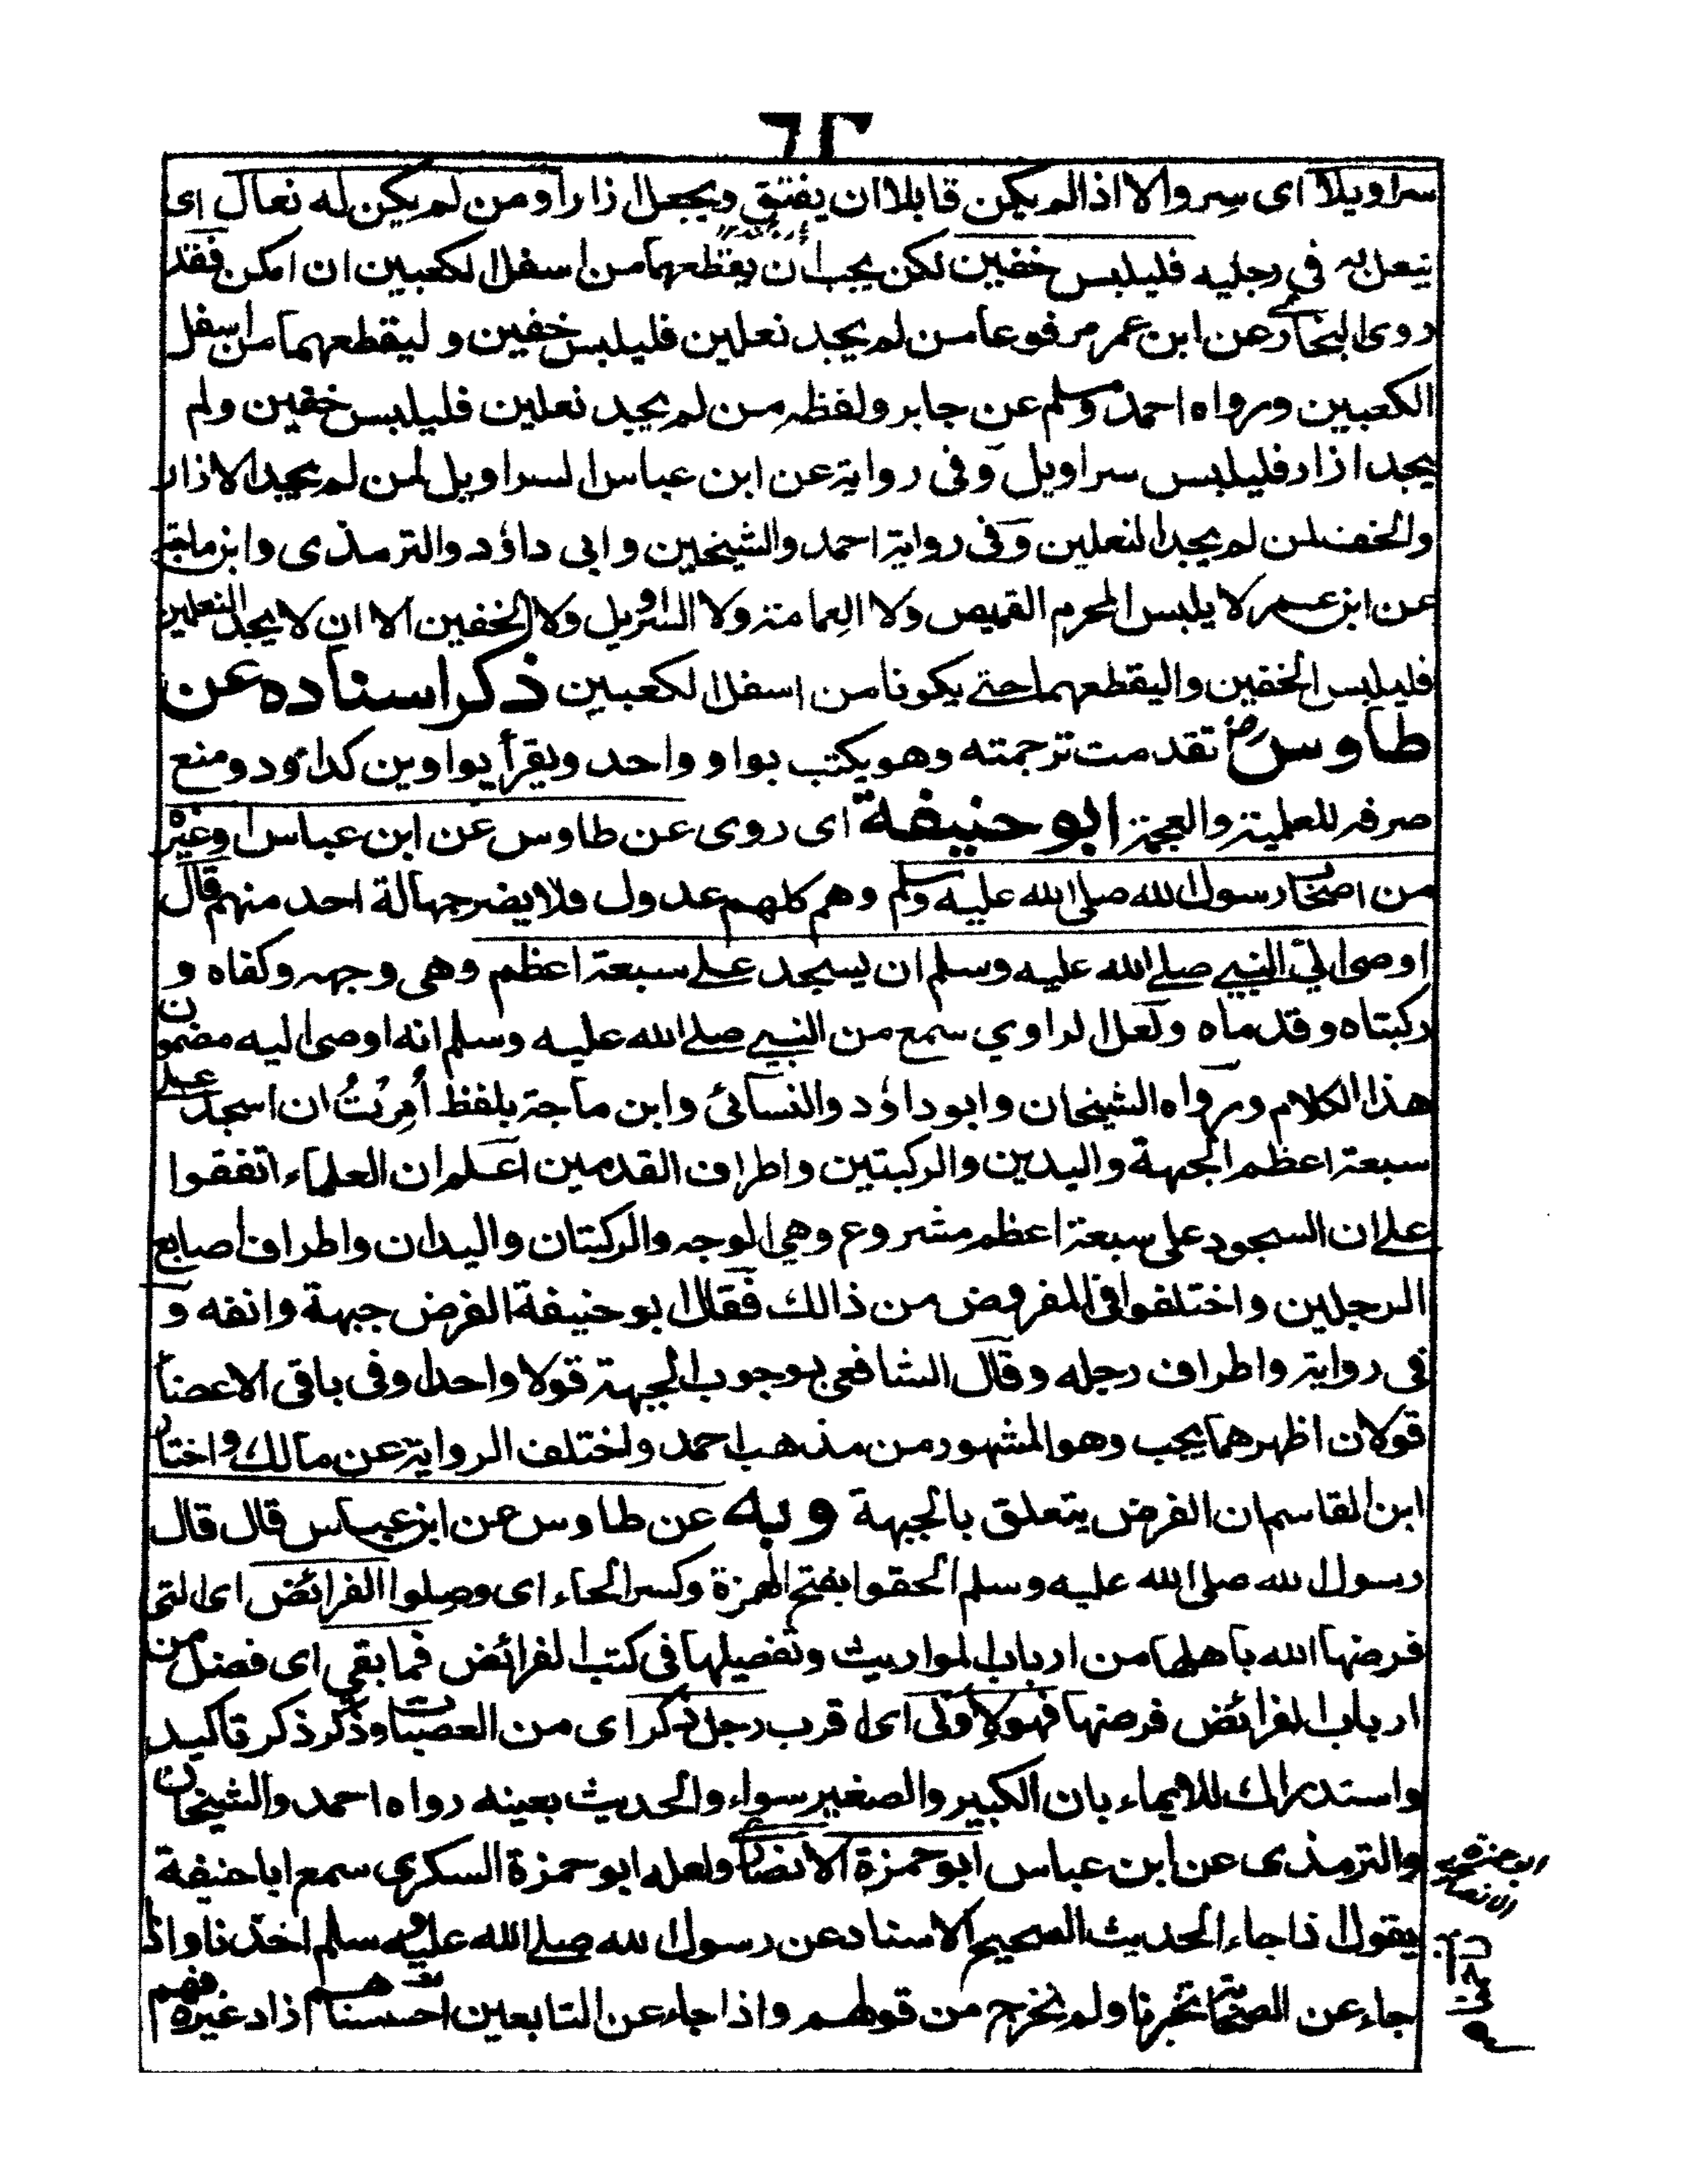 سراويلا اى سروالا اذا لم يكن قابلا ان يفتق ويجعل ازارا ومن لم يكن له نعال اى
ينعل به في رجليه فليلبس خفين لكن يجب ان يقطعهما من اسفل الكعبين ان امكن فقد
روى البخارى عن ابن عمر مرفوعا من لم يجد نعلين فليلبس خفين وليقطعهما من اسفل
الكعبين ورواه احمد ومسلم عن جابر ولفظه من لم يجد نعلين فليلبس خفين ولم
يجد ازار فليلبس سراويل وفى رواية عن ابن عباس السراويل لمن لم يجد الازار
والخف لمن لم يجد النعلين وفى رواية احمد والشيخين وابى داؤد والترمذى وابن ماجة
عن ابن عمر لا يلبس المحرم القميص ولا العمامة ولا السراويل ولا الخفين الا ان لا يجد النعلين
فليلبس الخفين واليقطعهما حتى يكونا من اسفل الكعبين ذكر اسناده عن
طاوس رض تقدمت ترجمته وهو يكتب بواو واحد ويقرأ بواوين كداؤد ومنع
صرفه للعلمية والعجمة ابو حنيفة اى روى عن طاوس عن ابن عباس او غيره
من اصحاب رسول الله صلى الله عليه وسلم وهم كلهم عدول ولا يضر جهالة احد منهم قال
اوصى الى النبي صلى الله عليه وسلم ان يسجد على سبعة اعظم وهى وجهه وكفاه و
ركبتاه وقدماه ولعل الراوي سمع من النبي صلى الله عليه وسلم انه اوصى اليه مضمون
هذا الكلام ورواه الشيخان وابو داؤد والنسائى وابن ماجة بلفظ أُمِرْتُ ان اسجد على
سبعة اعظم الجبهة واليدين والركبتين واطراف القدمين اعلم ان العلماء اتفقوا
على ان السجود على سبعة اعظم مشروع وهي الوجه والركبتان واليدان واطراف اصابع
الرجلين واختلفوا فى المفروض من ذالك فقال ابو حنيفة الفرض جبهة وانفه و
في رواية واطراف رجله وقال الشافعي بوجوب الجبهة قولا واحدا وفى باقى الاعضا
قولان اظهرهما يجب وهو المشهور من مذهب احمد واختلف الرواية عن مالك واختار
ابن القاسم ان الفرض يتعلق بالجبهة وبه عن طاوس عن ابن عباس قال قال
رسول الله صلى الله عليه وسلم الحقوا بفتح الهمزة وكسر الحاء اى وصلوا الفرائض اى التى
فرضها الله باهلها من ارباب المواريث وتفصيلها فى كتب الفرائض فما بقي اى فضل من
ارباب الفرائض فرضها فهو لاولى اى اقرب رجل ذكر اى من العصبات وذكر ذكر تاكيد
واستدراك للايماء بان الكبير والصغير سواء والحديث بعينه رواه احمد والشيخان
والترمذى عن ابن عباس ابو حمزة الانصارى ولعله ابو حمزة السكري سمع ابا حنيفة
يقول اذا جاء الحديث الصحيح الاسناد عن رسول الله صلى الله عليه وسلم اخذنا واذا
جاء عن الصحابة تخيرنا ولم نخرج من قولهم واذا جاء عن التابعين زاحمناهم زاد غيره فهم